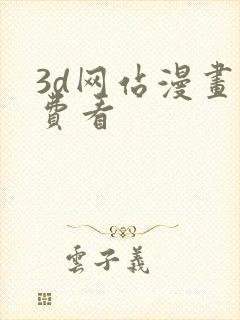 3d网佔漫畫
費看
雲子義